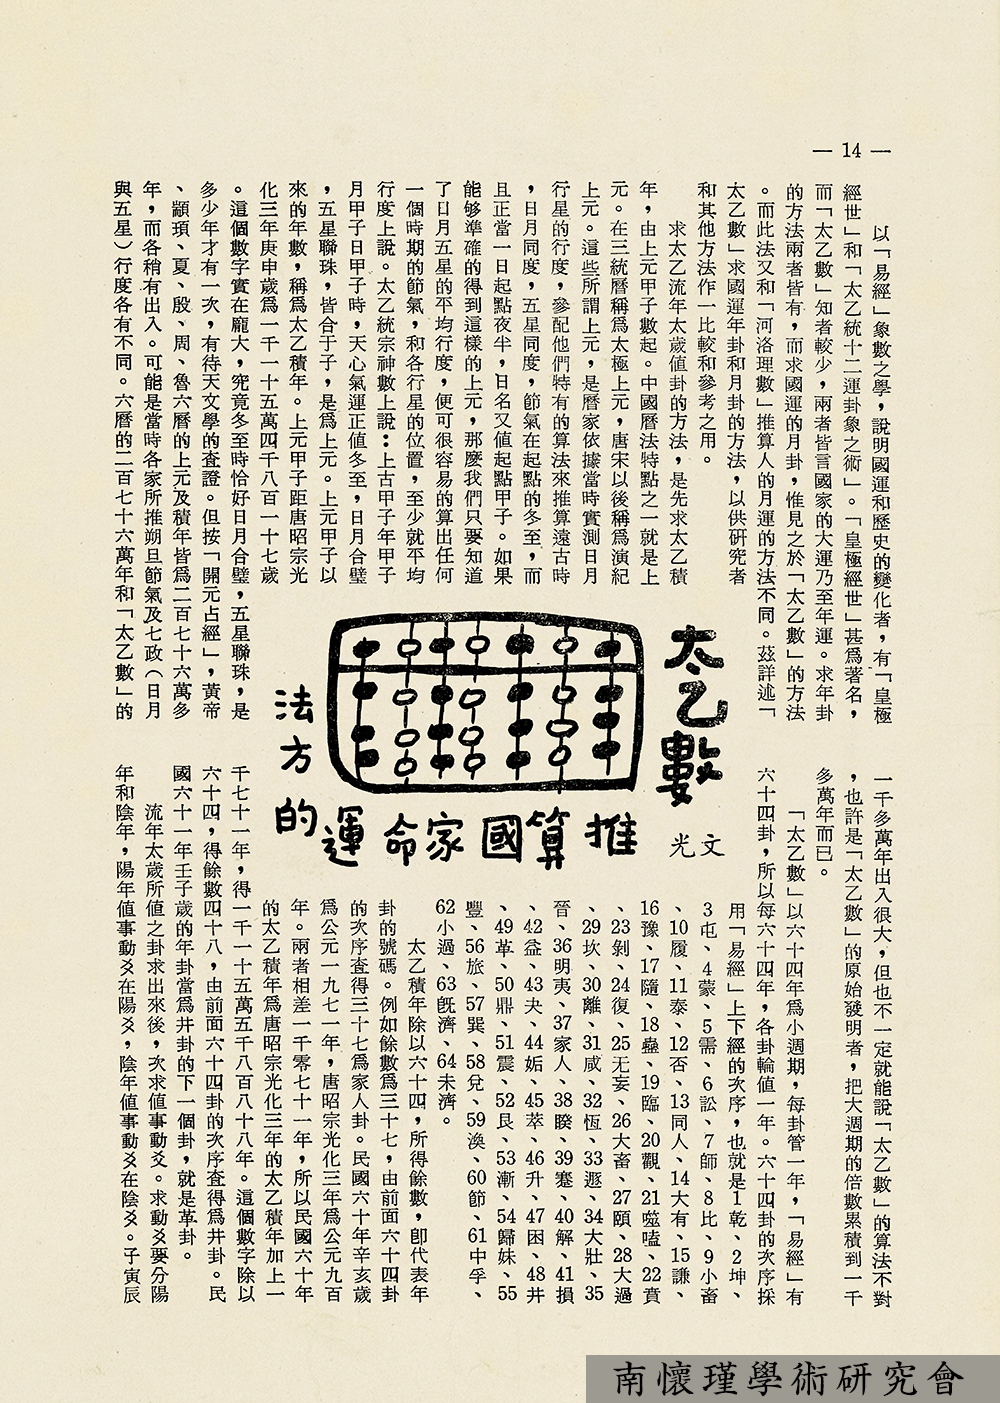 — 14 —
以「易經」象數之學，說明國運和歷史的變化者，有「皇極
經世」和「太乙統十二運卦象之術」。「皇極經世」甚爲著名，
而「太乙數」知者較少，兩者皆言國家的大運乃至年運。求年卦
的方法兩者皆有，而求國運的月卦，惟見之於「太乙數」的方法
。而此法又和「河洛理數」推算人的月運的方法不同。茲詳述「
太乙數」求國運年卦和月卦的方法，以供研究者
和其他方法作一比較和參考之用。
求太乙流年太歲值卦的方法，是先求太乙積
年，由上元甲子數起。中國曆法特點之一就是上
元。在三統曆稱爲太極上元，唐宋以後稱爲演紀
上元。這些所謂上元，是曆家依據當時實測日月
行星的行度，參配他們特有的算法來推算遠古時
，日月同度，五星同度，節氣在起點的冬至，而
且正當一日起點夜半，日名又值起點甲子。如果
能够準確的得到這樣的上元，那麽我們只要知道
了日月五星的平均行度，便可很容易的算出任何
一個時期的節氣，和各行星的位置，至少就平均
行度上說。太乙統宗神數上說：上古甲子年甲子
月甲子日甲子時，天心氣運正值冬至，日月合璧
，五星聯珠，皆合于子，是爲上元。上元甲子以
來的年數，稱爲太乙積年。上元甲子距唐昭宗光
化三年庚申歲爲一千一十五萬四千八百一十七歲
。這個數字實在龐大，究竟冬至時恰好日月合璧，五星聯珠，是
多少年才有一次，有待天文學的查證。但按「開元占經」，黃帝
、顓頊、夏、殷、周、魯六曆的上元及積年皆爲二百七十六萬多
年，而各稍有出入。可能是當時各家所推朔旦節氣及七政（日月
與五星）行度各有不同。六曆的二百七十六萬年和「太乙數」的
太乙數
推算國家命運
的方法
文光
一千多萬年出入很大，但也不一定就能說「太乙數」的算法不對
，也許是「太乙數」的原始發明者，把大週期的倍數累積到一千
多萬年而已。
「太乙數」以六十四年爲小週期，每卦管一年，「易經」有
六十四卦，所以每六十四年，各卦輪值一年。六十四卦的次序採
用「易經」上下經的次序，也就是1乾、2坤、
3屯、4蒙、5需、6訟、7師、8比、9小畜
、10履、11泰、12否、13同人、14大有、15謙、
16豫、17隨、18蠱、19臨、20觀、21噬嗑、22賁
、23剝、24復、25无妄、26大畜、27頤、28大過
、29坎、30離、31咸、32恆、33遯、34大壯、35
晉、36明夷、37家人、38睽、39蹇、40解、41損
、42益、43夬、44姤、45萃、46升、47困、48井
、49革、50鼎、51震、52艮、53漸、54歸妹、55
豐、56旅、57巽、58兌、59渙、60節、61中孚、
62小過、63既濟、64未濟。
太乙積年除以六十四，所得餘數，卽代表年
卦的號碼。例如餘數爲三十七，由前面六十四卦
的次序查得三十七爲家人卦。民國六十年辛亥歲
爲公元一九七一年，唐昭宗光化三年爲公元九百
年。兩者相差一千零七十一年，所以民國六十年
的太乙積年爲唐昭宗光化三年的太乙積年加上一
千七十一年，得一千一十五萬五千八百八十八年。這個數字除以
六十四，得餘數四十八，由前面六十四卦的次序查得爲井卦。民
國六十一年壬子歲的年卦當爲井卦的下一個卦，就是革卦。
流年太歲所值之卦求出來後，次求值事動爻。求動爻要分陽
年和陰年，陽年值事動爻在陽爻，陰年值事動爻在陰爻。子寅辰
南懷瑾學術研究會